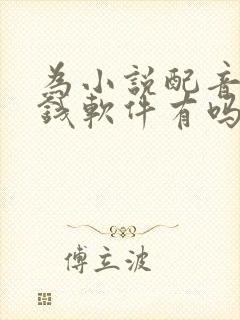 為小說配音
錢軟件有嗎
傅立波